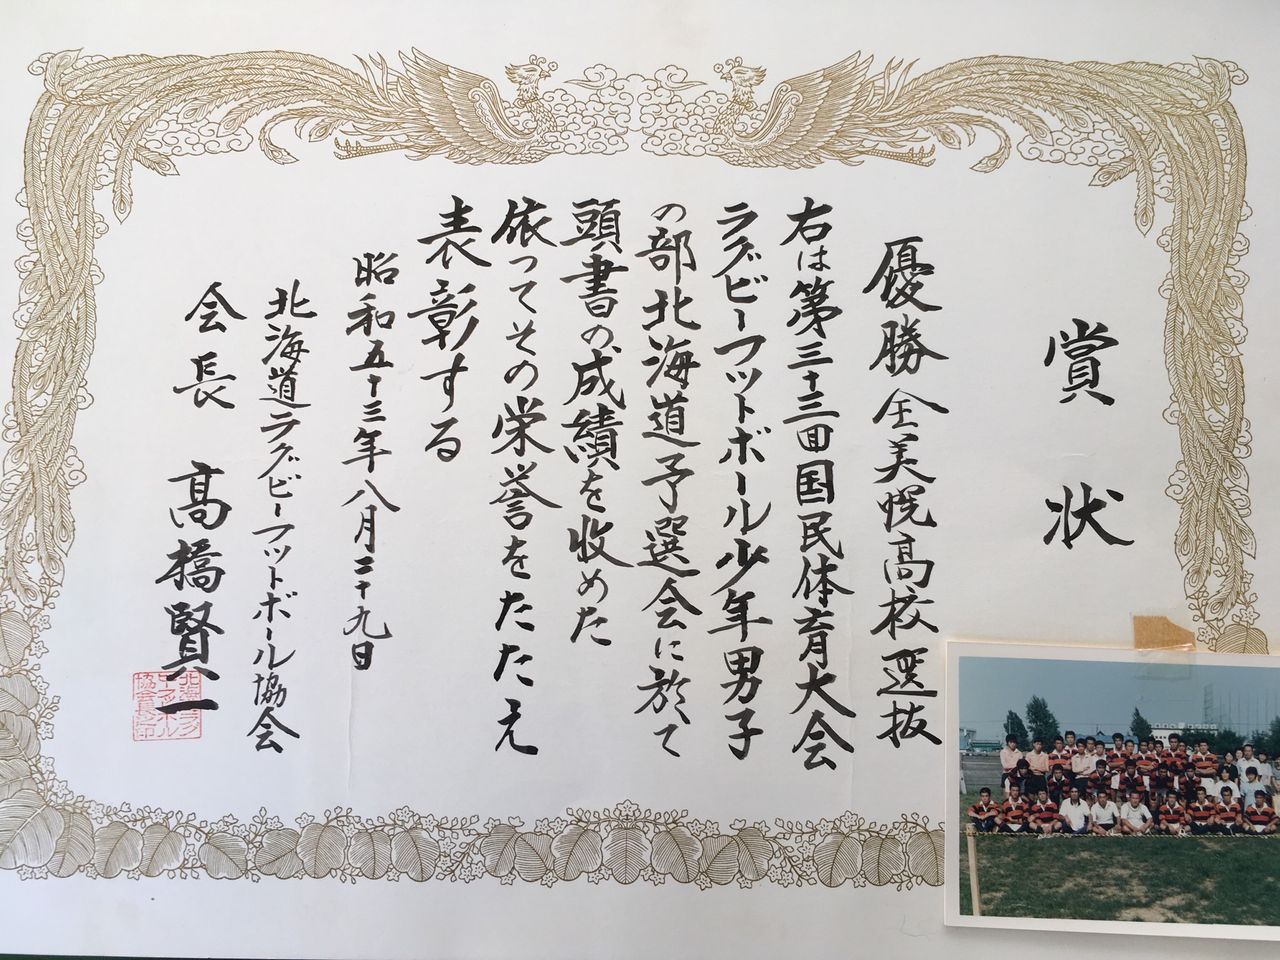 賞状
優勝 全美幌高校選抜
右は第三十三回国民体育大会
ラグビーフットボール少年男子
の部北海道予選会に於て
頭書の成績を収めた
依ってその栄誉をたたえ
表彰する
昭和五十三年八月二十九日
北海道ラグビーフットボール協会
会長 髙橋賢一